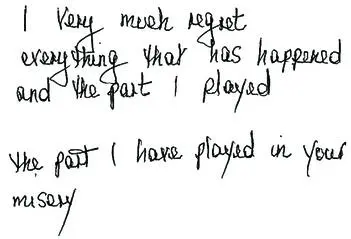 I very much regret
everything that has happened
and the part I played
the part I have played in your
misery